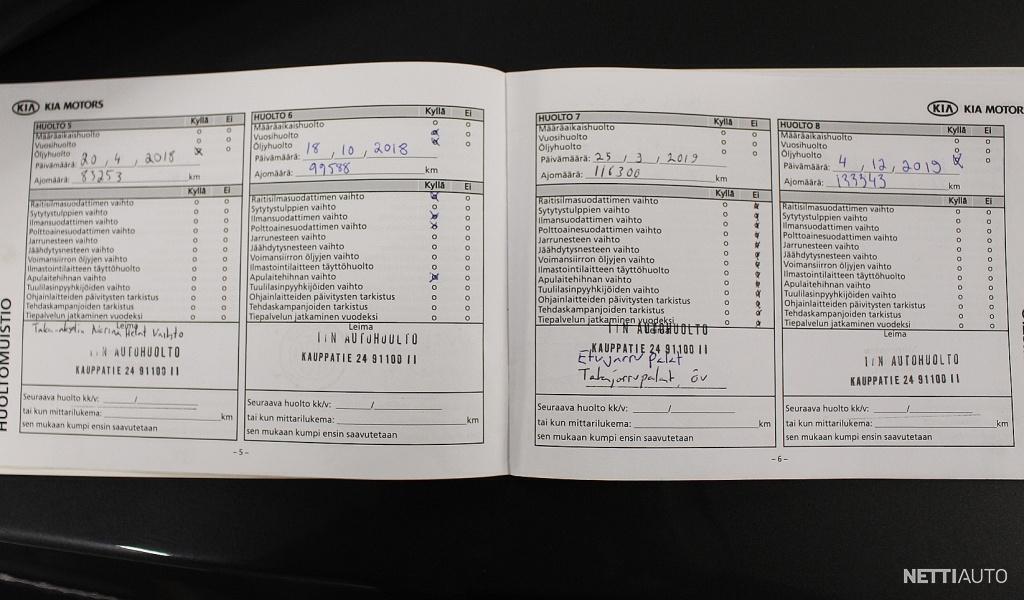 KIA KIA MOTORS
HUOLTO 5 Kyllä Ei
Määräaikaishuolto
Vuosihuolto
Öljyhuolto
Päivämäärä: 20 , 4 , 2018
Ajomäärä: 83253 km
Kyllä Ei
Raitisilmasuodattimen vaihto
Sytytystulppien vaihto
Ilmansuodattimen vaihto
Polttoainesuodattimen vaihto
Jarrunesteen vaihto
Jäähdytysnesteen vaihto
Voimansiirron öljyjen vaihto
Ilmastointilaitteen täyttöhuolto
Apulaitehihnan vaihto
Tuulilasinpyyhkijöiden vaihto
Ohjainlaitteiden päivitysten tarkistus
Tehdaskampanjoiden tarkistus
Tiepalvelun jatkaminen vuodeksi
Leima
Vaihto
AUTOHUOLTO
KAUPPATIE 24 91100 II
Seuraava huolto kk/v: /
tai kun mittarilukema: km
sen mukaan kumpi ensin saavutetaan
-5-
HUOLTO 6 Kyllä Ei
Määräaikaishuolto
Vuosihuolto
Öljyhuolto
Päivämäärä: 18 , 10 , 2018
Ajomäärä: 99588 km
Kyllä Ei
Raitisilmasuodattimen vaihto
Sytytystulppien vaihto
Ilmansuodattimen vaihto
Polttoainesuodattimen vaihto
Jarrunesteen vaihto
Jäähdytysnesteen vaihto
Voimansiirron öljyjen vaihto
Ilmastointilaitteen täyttöhuolto
Apulaitehihnan vaihto
Tuulilasinpyyhkijöiden vaihto
Ohjainlaitteiden päivitysten tarkistus
Tehdaskampanjoiden tarkistus
Tiepalvelun jatkaminen vuodeksi
Leima
AUTOHUOLTO
KAUPPATIE 24 91100 II
Seuraava huolto kk/v: /
tai kun mittarilukema: km
sen mukaan kumpi ensin saavutetaan
HUOLTOMUISTIO
KIA KIA MOTOR
HUOLTO 7 Kyllä Ei
Määräaikaishuolto
Vuosihuolto
Öljyhuolto
Päivämäärä: 25 , 3 , 2019
Ajomäärä: 116300 km
Kyllä Ei
Raitisilmasuodattimen vaihto
Sytytystulppien vaihto
Ilmansuodattimen vaihto
Polttoainesuodattimen vaihto
Jarrunesteen vaihto
Jäähdytysnesteen vaihto
Voimansiirron öljyjen vaihto
Ilmastointilaitteen täyttöhuolto
Apulaitehihnan vaihto
Tuulilasinpyyhkijöiden vaihto
Ohjainlaitteiden päivitysten tarkistus
Tehdaskampanjoiden tarkistus
Tiepalvelun jatkaminen vuodeksi
AUTOHUOLTO
KAUPPATIE 24 91100 II
Etujarru palat
Takajarrupalat, öv
Seuraava huolto kk/v: /
tai kun mittarilukema: km
sen mukaan kumpi ensin saavutetaan
-6-
HUOLTO 8 Kyllä Ei
Määräaikaishuolto
Vuosihuolto
Öljyhuolto
Päivämäärä: 4 , 12 , 2019
Ajomäärä: 133343 km
Kyllä Ei
Raitisilmasuodattimen vaihto
Sytytystulppien vaihto
Ilmansuodattimen vaihto
Polttoainesuodattimen vaihto
Jarrunesteen vaihto
Jäähdytysnesteen vaihto
Voimansiirron öljyjen vaihto
Ilmastointilaitteen täyttöhuolto
Apulaitehihnan vaihto
Tuulilasinpyyhkijöiden vaihto
Ohjainlaitteiden päivitysten tarkistus
Tehdaskampanjoiden tarkistus
Tiepalvelun jatkaminen vuodeksi
Leima
AUTOHUOLTO
KAUPPATIE 24 91100 II
Seuraava huolto kk/v: /
tai kun mittarilukema: km
sen mukaan kumpi ensin saavutetaan
NETTIAUTO